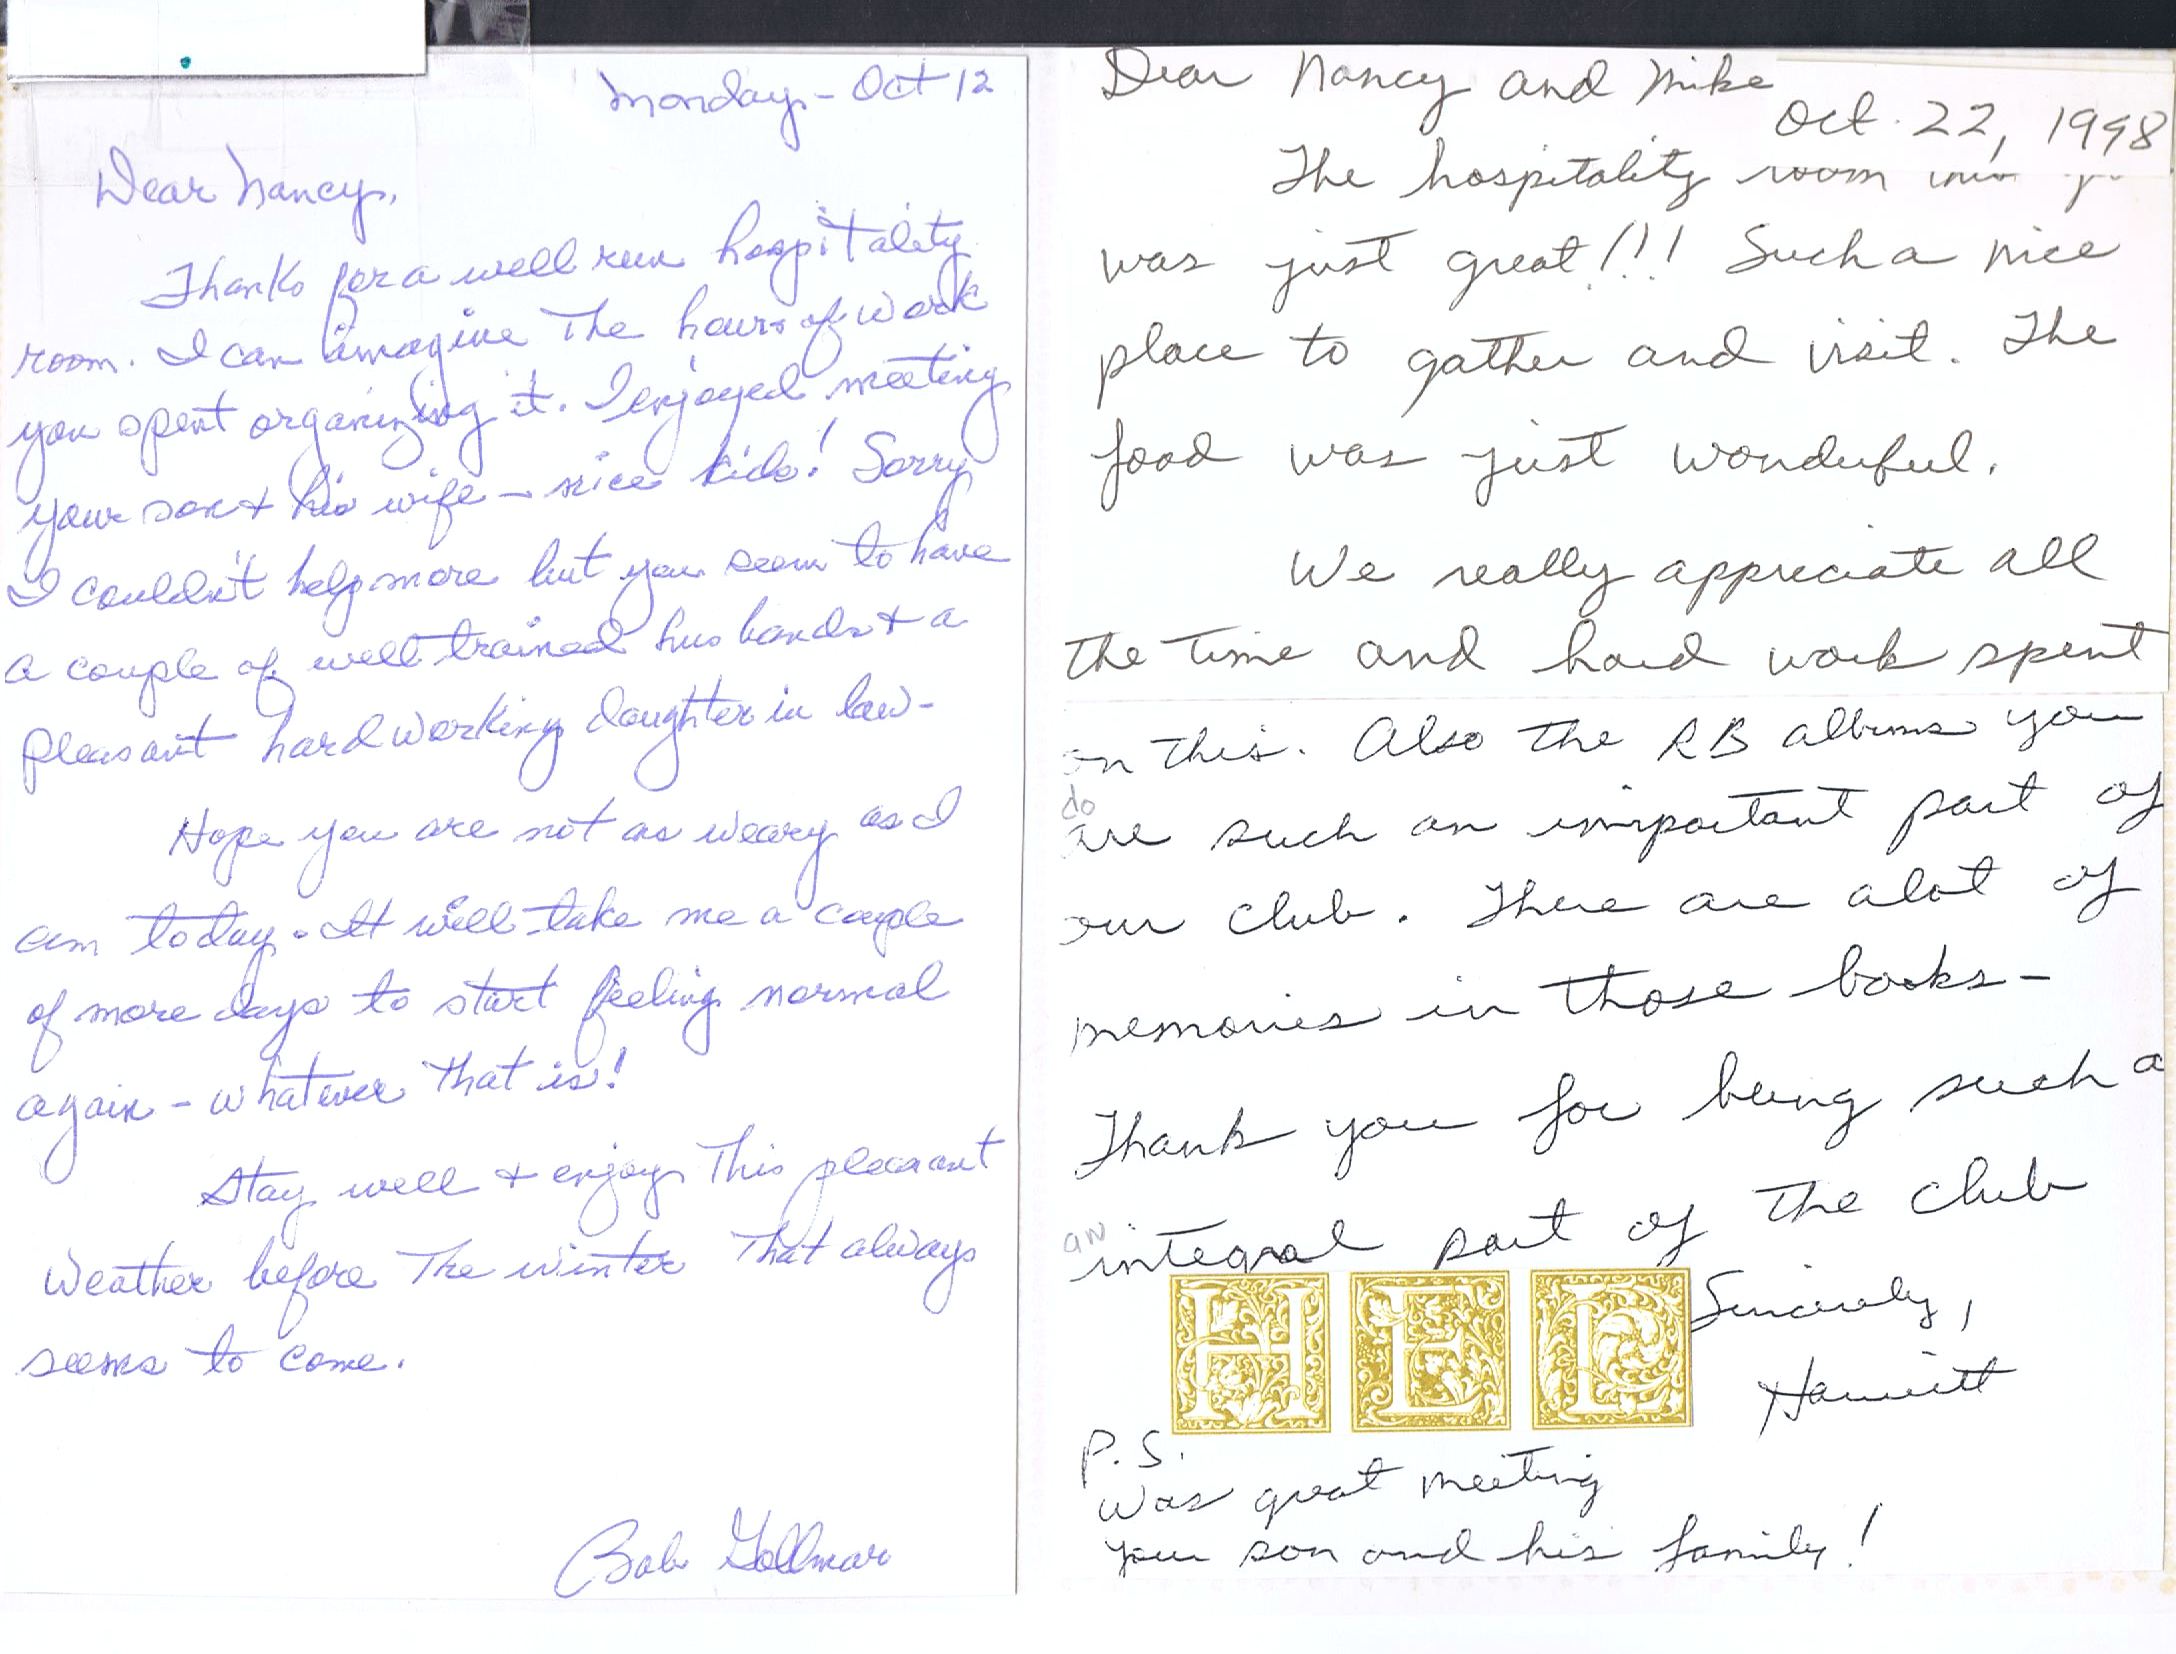 Monday - Oct 12
Dear Nancy,
Thanks for a well run hospitality
room. I can imagine the hours of work
you spent organizing it. I enjoyed meeting
your son & his wife - nice kids! Sorry
I couldn't help more but you seem to have
a couple of well trained husbands & a
pleasant hard working daughter in law-
Hope you are not as weary as I
am today. It will take me a couple
of more days to start feeling normal
again - whatever that is!
Stay well & enjoy this pleasant
weather before the winter that always
seems to come.
Bob Gollmar
Dear Nancy and Mike
Oct. 22, 1998
The hospitality room
was just great!!! Such a nice
place to gather and visit. The
food was just wonderful.
We really appreciate all
the time and hard work spent
on this. Also the RB albums you
do
are such an important part of
our club. There are alot of
memories in those books-
Thank you for being such a
an
integral part of the club
HEL
Sincerely,
Harriett
P.S.
Was great meeting
your son and his family!